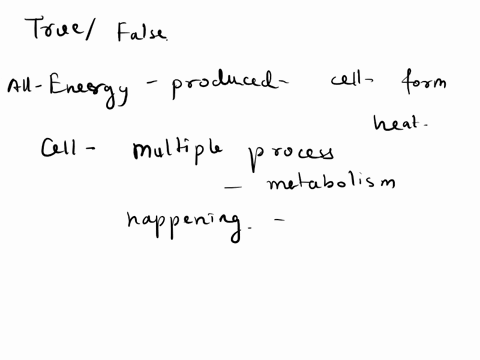 True/ False.
All-Energy - produced- cell- form
heat.
Cell - multiple process
- metabolism
happening. -